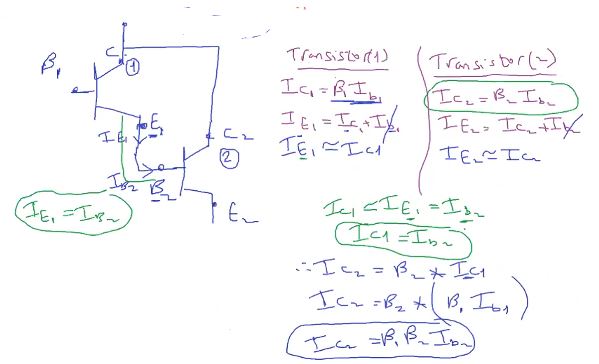 C
①
β₁
I E₁
E₁
C₂
②
I B₂
B₂
E₂
I E₁ = I B₂
Transistor(1)
I C₁ = β₁ I b₁
I E₁ = I c₁ + I b₁
I E₁ ≃ I C1
Transistor(2)
I C₂ = β₂ I b₂
I E₂ = I C₂ + I b
I E₂ ≃ I C₂
I C₁ ≃ I E₁ = I b₂
I C1 = I b₂
∴ I C₂ = β₂ * I C1
I C₂ = β₂ * (β₁ I b1)
I C₂ = β₁ β₂ I b₂